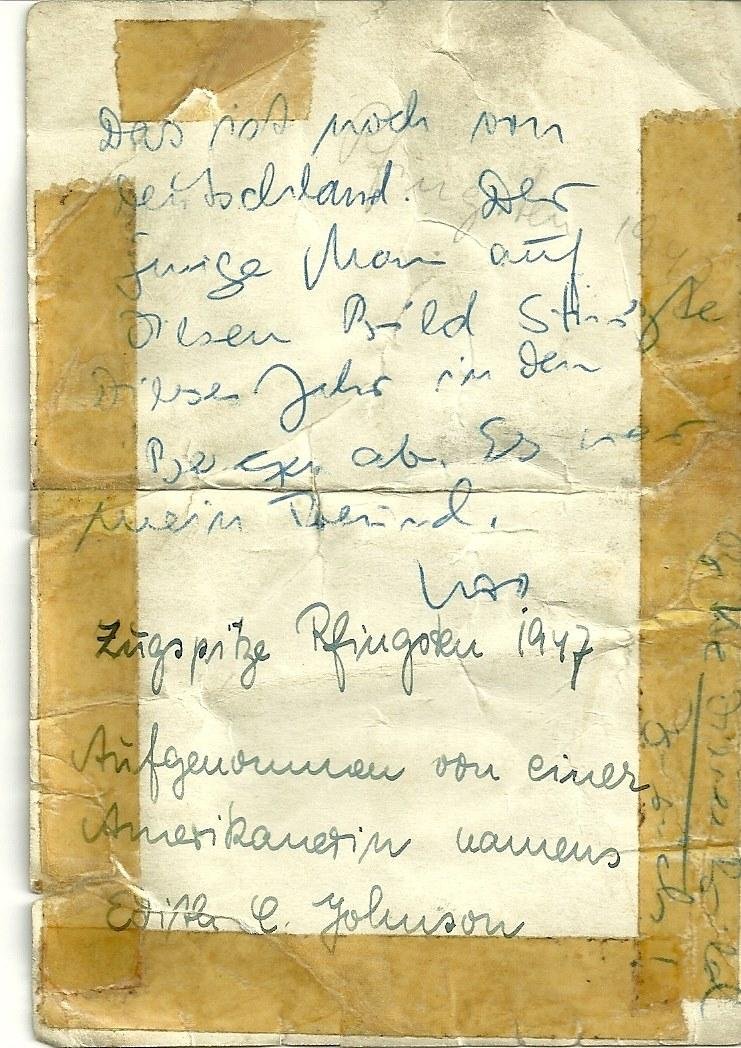 Das ist noch von
Deutschland. Der
junge Mann auf
diesen Bild stürzte
dieses Jahr in den
Bergen ab. Es war
mein Freund.
Zugspitze Pfingsten 1947
Aufgenommen von einer
Amerikanerin namens
Edith C. Johnson
Pfingsten 1947